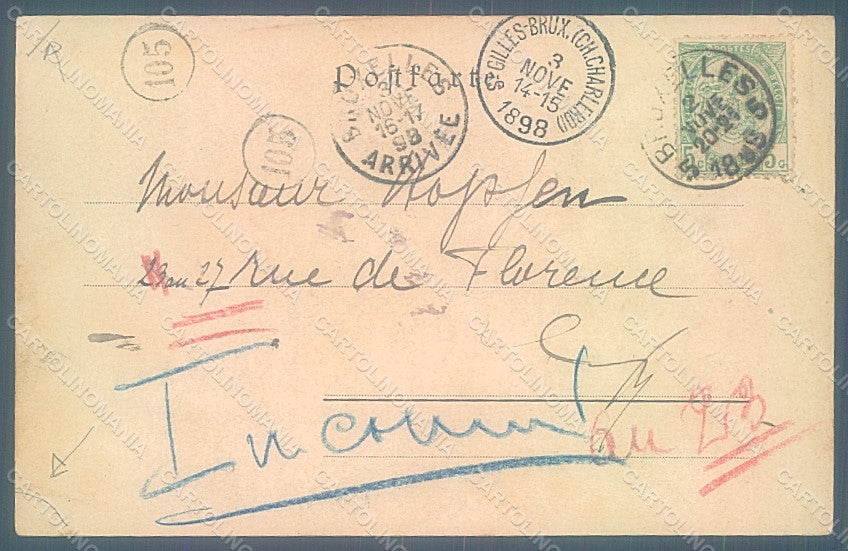 105
Postkarte
BRUXELLES
3
NOVE
16-17
98
ARRIVÉE
ST GILLES-BRUX. (CH. CHARLEROI)
3
NOVE
14-15
1898
POSTES
BRUXELLES 5
NOVE
1898
5 C
105
Monsieur Hopfen
23 ou 27 rue de Florence
E/V
Inconnu
au 23
CARTOLINOMANIA